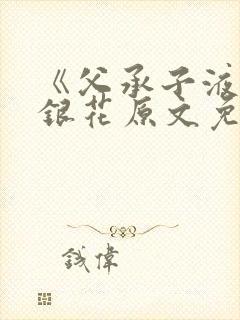 《父承子液
銀花原文免
钱偉